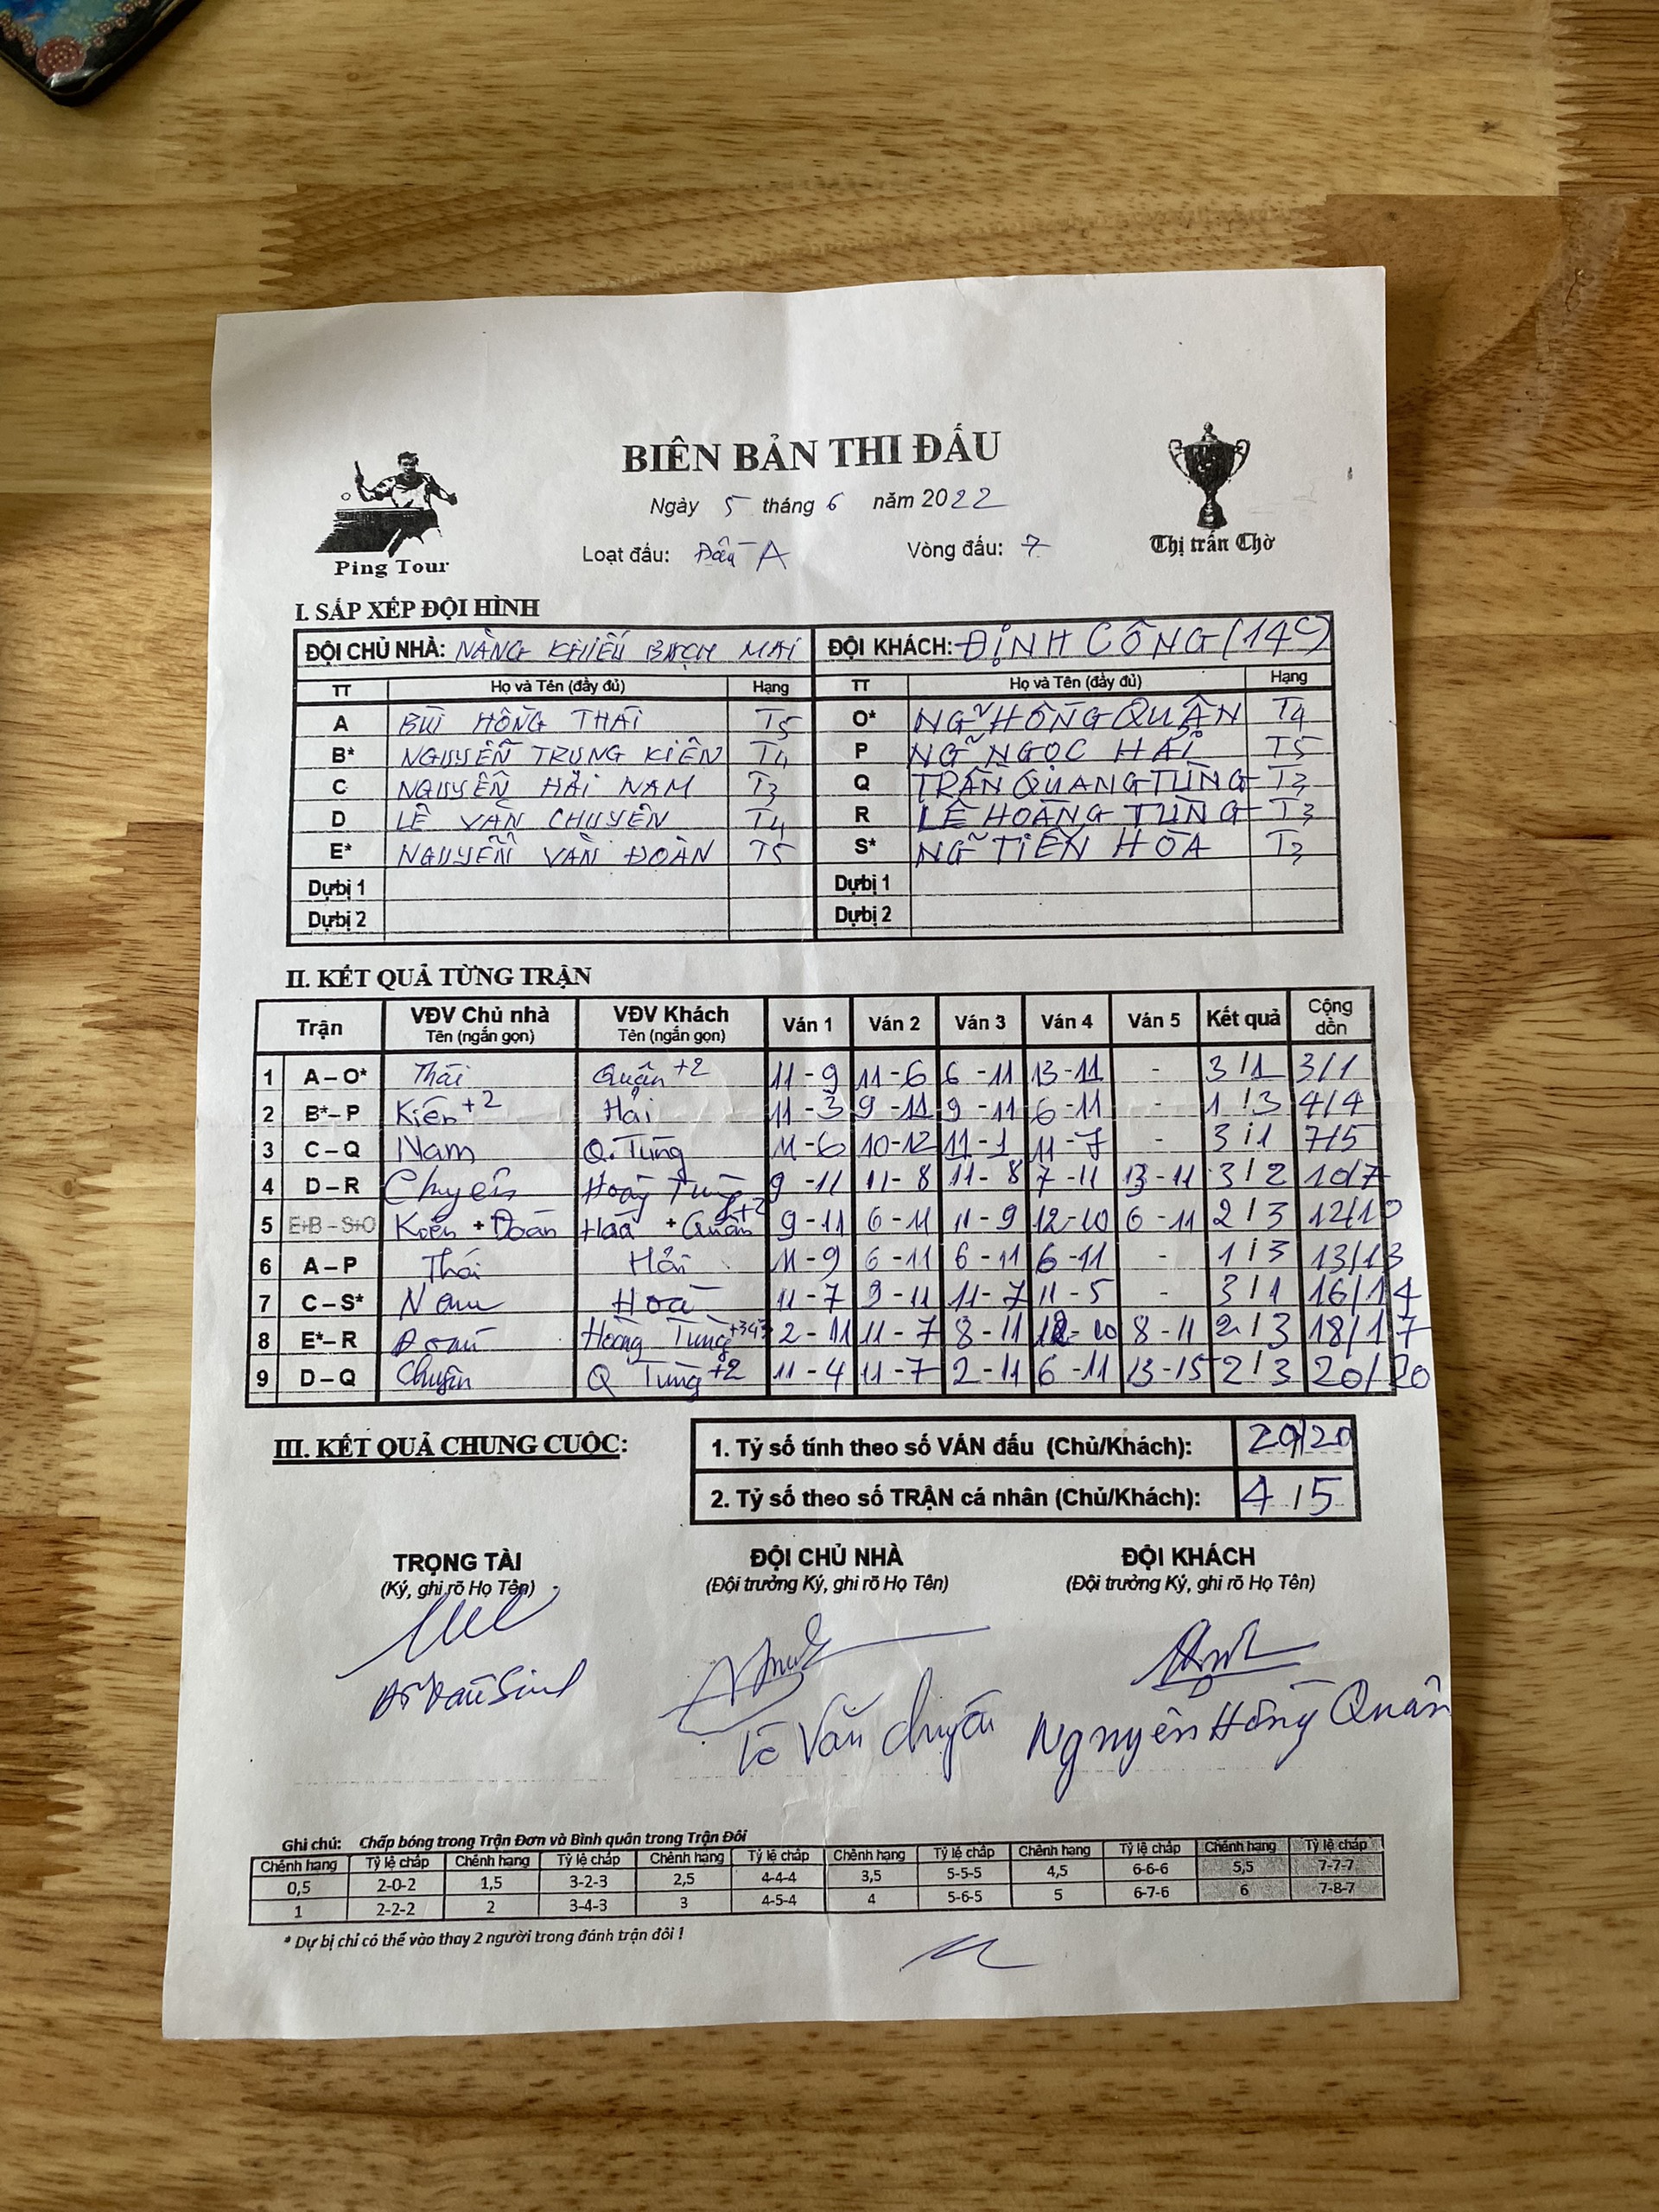 BIÊN BẢN THI ĐẤU
Ngày 5 tháng 6 năm 2022
Loạt đấu: Đấu A Vòng đấu: 7
Ping Tour
Thị trấn Chờ
I. SẮP XẾP ĐỘI HÌNH
ĐỘI CHỦ NHÀ: NĂNG KHIẾU BẠCH MAI ĐỘI KHÁCH: ĐỊNH CÔNG (14C)
TT Họ và Tên (đầy đủ) Hạng TT Họ và Tên (đầy đủ) Hạng
A BÙI HỒNG THÁI T5 O* NGỮ HỒNG QUÂN T4
B* NGUYỄN TRUNG KIÊN T4 P NGỮ NGỌC HẢI T5
C NGUYỄN HẢI NAM T3 Q TRẦN QUANG TÙNG T3
D LÊ VĂN CHUYÊN T4 R LÊ HOÀNG TÙNG T3
E* NGUYỄN VĂN ĐOÀN T5 S* NGỮ TIẾN HÒA T3
Dựbị 1 Dựbị 1
Dựbị 2 Dựbị 2
II. KẾT QUẢ TỪNG TRẬN
Trận VĐV Chủ nhà Tên (ngắn gọn) VĐV Khách Tên (ngắn gọn) Ván 1 Ván 2 Ván 3 Ván 4 Ván 5 Kết quả Cộng dồn
1 A – O* Thái Quân +2 11 - 9 11 - 6 6 - 11 13 - 11 - 3 / 1 3/1
2 B* – P Kiên +2 Hải 11 - 3 9 - 11 9 - 11 6 - 11 - 1 / 3 4/4
3 C – Q Nam Q. Tùng 11 - 6 10 - 12 11 - 1 11 - 7 - 3 / 1 7/5
4 D – R Chuyên Hoàng Tùng 9 - 11 11 - 8 11 - 8 7 - 11 13 - 11 3 / 2 10/7
5 E+B – S+O Kiên + Đoàn Hoà + Quân +2 9 - 11 6 - 11 11 - 9 12 - 10 6 - 11 2 / 3 12/10
6 A – P Thái Hải 11 - 9 6 - 11 6 - 11 6 - 11 - 1 / 3 13/13
7 C – S* Nam Hoà 11 - 7 9 - 11 11 - 7 11 - 5 - 3 / 1 16/14
8 E* – R Đoàn Hoàng Tùng +343 2 - 11 11 - 7 8 - 11 12 - 10 8 - 11 2 / 3 18/17
9 D – Q Chuyên Q Tùng +2 11 - 4 11 - 7 2 - 11 6 - 11 13 - 15 2 / 3 20/20
III. KẾT QUẢ CHUNG CUỘC:
1. Tỷ số tính theo số VÁN đấu (Chủ/Khách): 20/20
2. Tỷ số theo số TRẬN cá nhân (Chủ/Khách): 4 / 5
TRỌNG TÀI ĐỘI CHỦ NHÀ ĐỘI KHÁCH
(Ký, ghi rõ Họ Tên) (Đội trưởng Ký, ghi rõ Họ Tên) (Đội trưởng Ký, ghi rõ Họ Tên)
Văn Sinh
Lê Văn Chuyên
Nguyễn Hồng Quân
Ghi chú: Chấp bóng trong Trận Đơn và Bình quân trong Trận Đôi
Chênh hạng Tỷ lệ chấp Chênh hạng Tỷ lệ chấp Chênh hạng Tỷ lệ chấp Chênh hạng Tỷ lệ chấp Chênh hạng Tỷ lệ chấp Chênh hạng Tỷ lệ chấp
0,5 2-0-2 1,5 3-2-3 2,5 4-4-4 3,5 5-5-5 4,5 6-6-6 5,5 7-7-7
1 2-2-2 2 3-4-3 3 4-5-4 4 5-6-5 5 6-7-6 6 7-8-7
* Dự bị chỉ có thể vào thay 2 người trong đánh trận đôi !